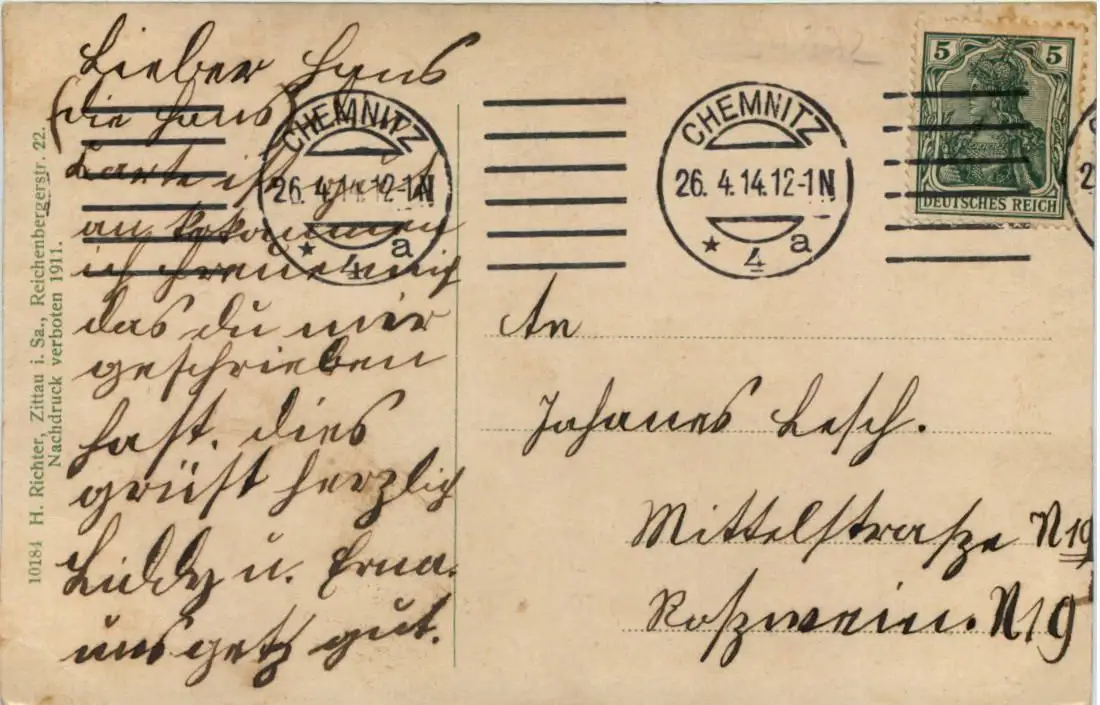 Lieber Hans
(die Hans)
Karte ist
an kekommen
ich freue mich
das du mir
geschrieben
hast. dies
grüst herzlich
Liddy u. Erna.
uns getz gut.
10184 H. Richter, Zittau i. Sa., Reichenbergerstr. 22.
Nachdruck verboten 1911.
CHEMNITZ
26. 4. 14. 12-1 N
* 4 a
CHEMNITZ
26. 4. 14. 12-1 N
* 4 a
5 5
DEUTSCHES REICH
An
Johanes Lesch.
Mittelstraße N 19
Roßwein. N 19